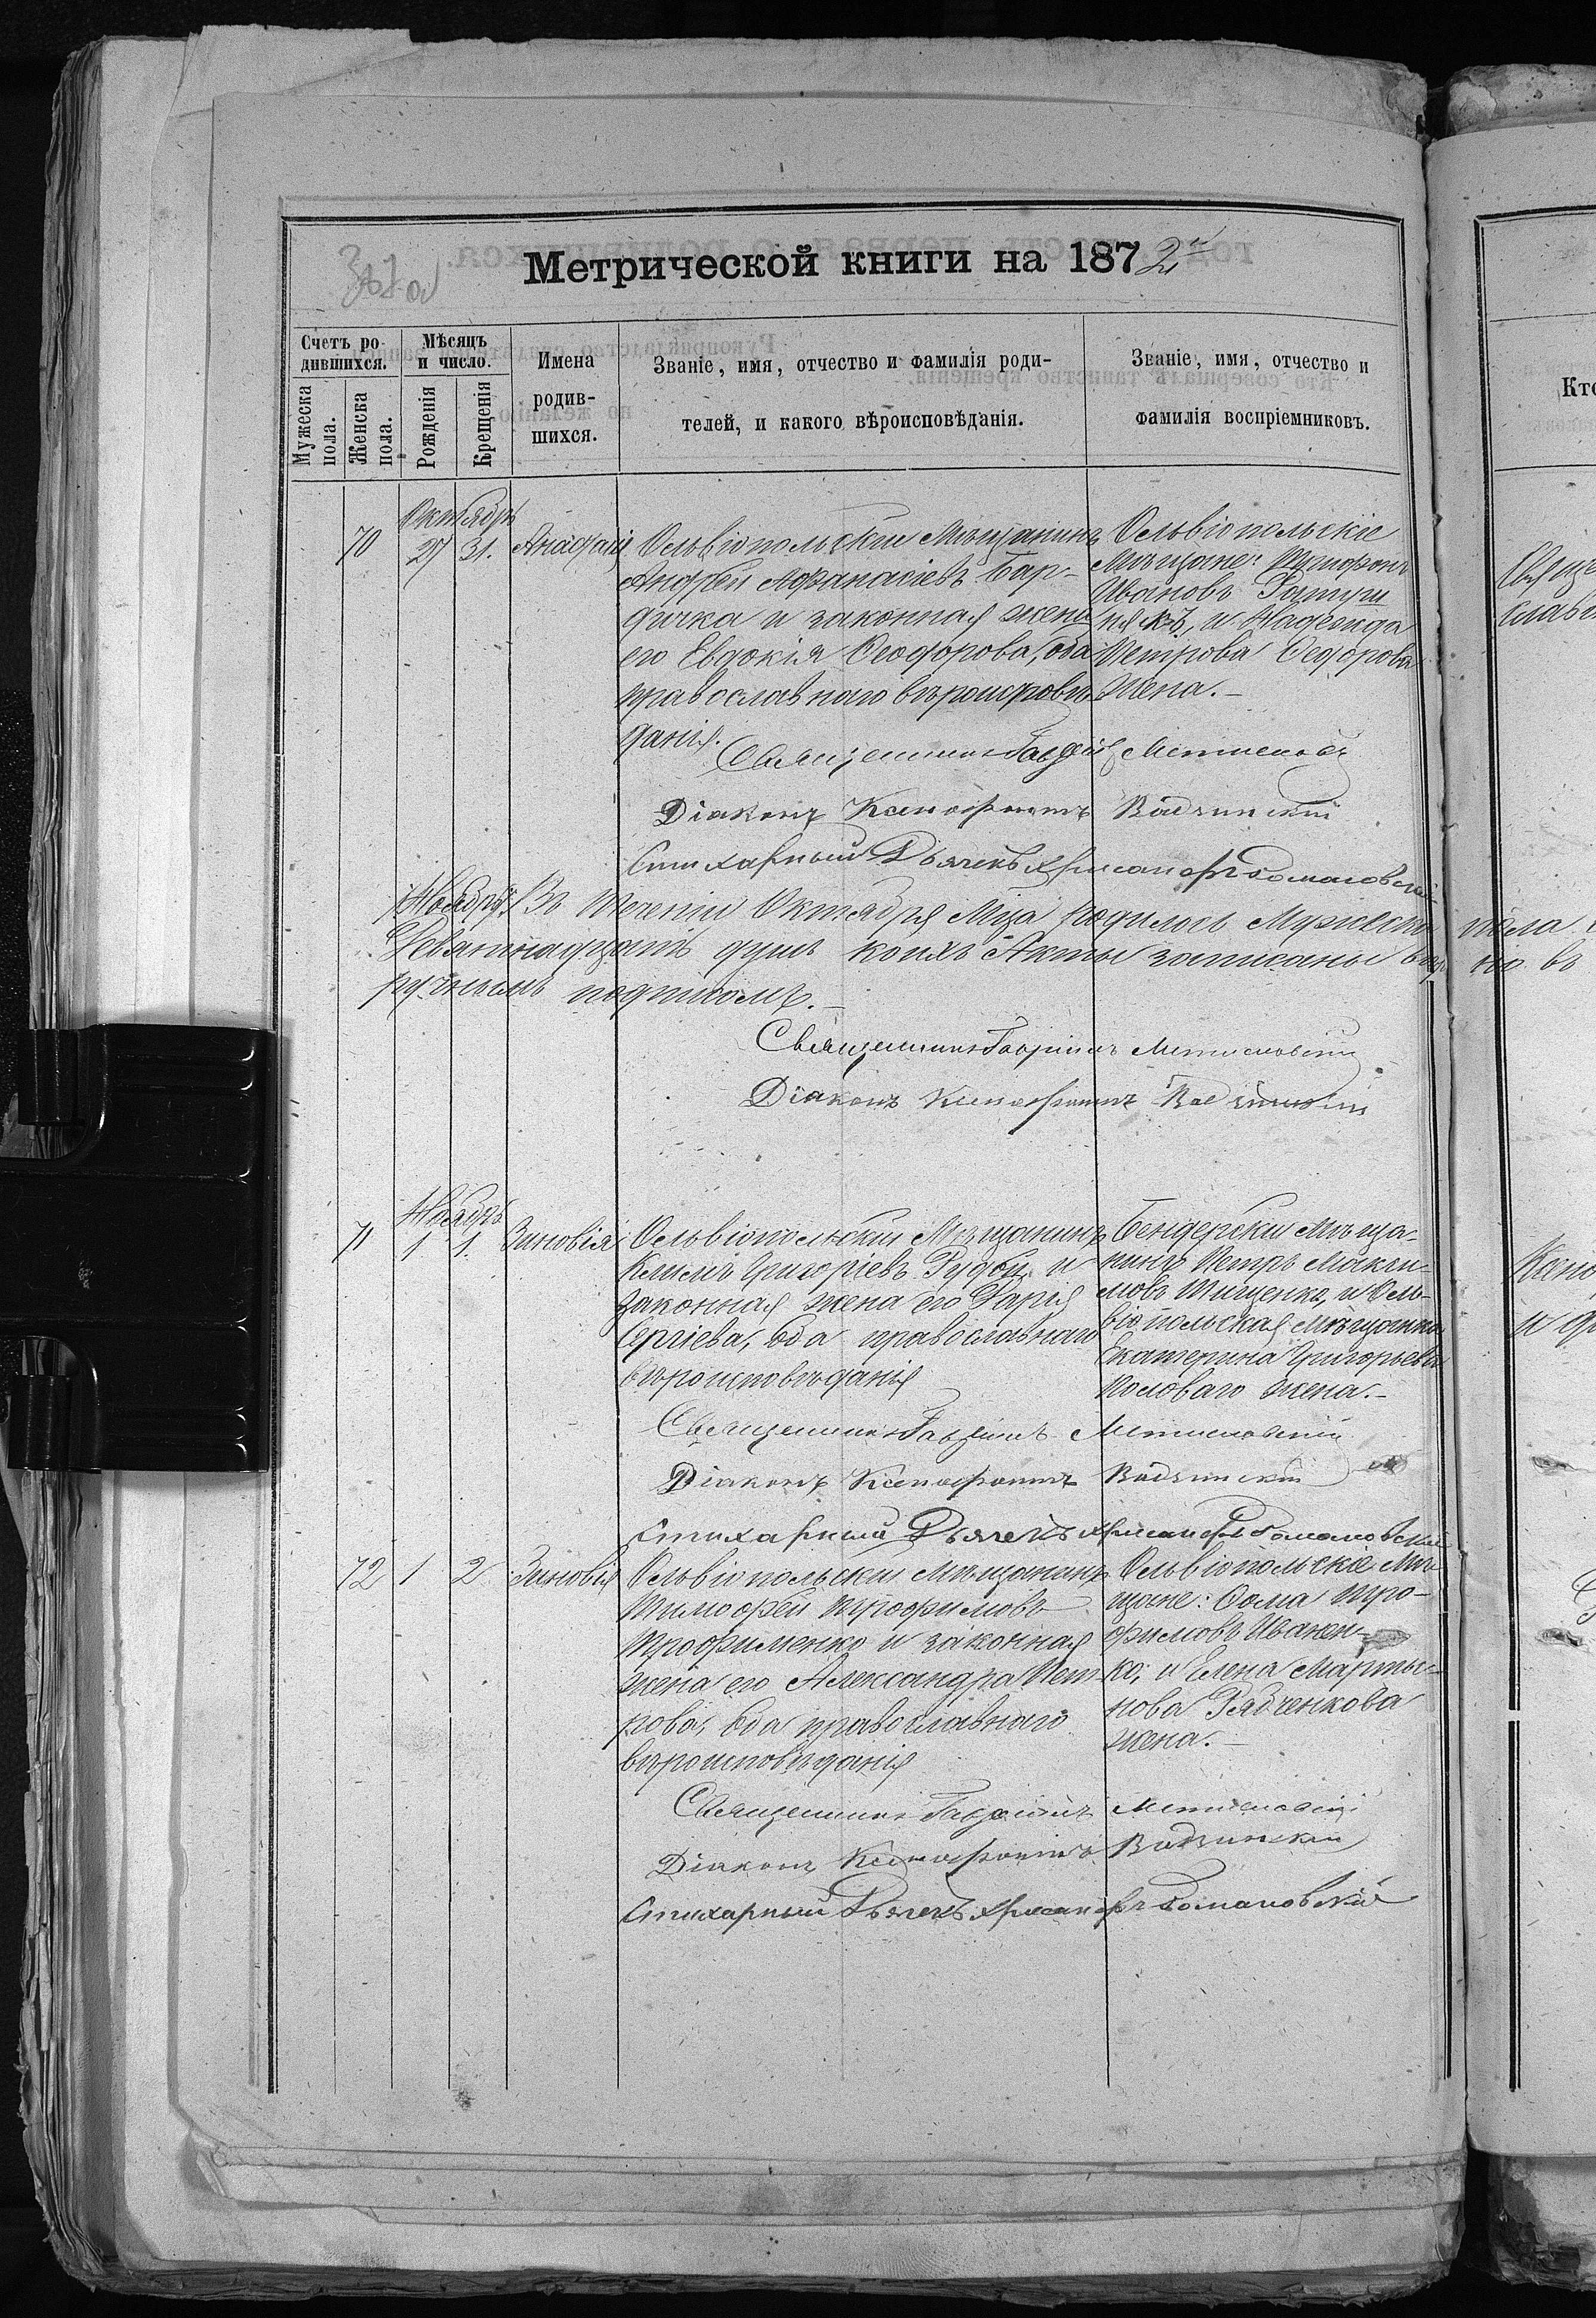 Метрической книги на 1872й
Счетъ ро-
дившихся.
Мужеска пола.
Женска пола.
Мѣсяцъ
и число.
Рожденія
Крещенія
Имена
родив-
шихся.
Званіе, имя, отчество и фамилія роди-
телей, и какого вѣроисповѣданія.
Званіе, имя, отчество и
фамилія воспріемниковъ.
Октябрь
70 27 31.
Ольвіопольскій Мѣщанинъ
Андрей Афанасіевъ Бар-
дичка и законная жена
его Евдокія Ѳеодорова, оба
православнаго вѣроисповѣ-
данія.
Ольвіопольскіе
Мѣщане:
Ивановъ
и Надежда
Петрова Ѳедорова
жена.
Священникъ Гавріилъ
Діаконъ Ксенофонтъ
Стихарный Дьячекъ Хрисанфъ Романовскій
Въ теченіи Октября Мца родилось Мужеска
Девятнадцать душъ коихъ Акты записаны
ручнымъ подписомъ.
Священникъ Гавріилъ
Діаконъ Ксенофонтъ
Ноябрь
71 1 1. Зиновія
Ольвіопольскій Мѣщанинъ
Климъ Григоріевъ и
законная жена его Дарія
Сергіева, оба православнаго
вѣроисповѣданія
Бендерскій мѣща-
нинъ Петръ Макси-
мовъ Тищенко, и Оль-
віопольская мѣщанка
Екатерина Григорьева
жена.
Священникъ Гавріилъ
Діаконъ Ксенофонтъ
Стихарный Дьячекъ Хрисанфъ Романовскій
72 1 2 Зиновія
Ольвіопольскій мѣщанинъ
Тимофей Трофимовъ
Трофименко и законная
жена его Александра Пет-
рова, оба православнаго
вѣроисповѣданія
Ольвіопольскіе Мѣ-
щане: Ѳома Тро-
фимовъ Иванен-
ко, и Елена Марты-
нова Рябченкова
жена.
Священникъ Гавріилъ
Діаконъ Ксенофонтъ
Стихарный Дьячекъ Хрисанфъ Романовскій